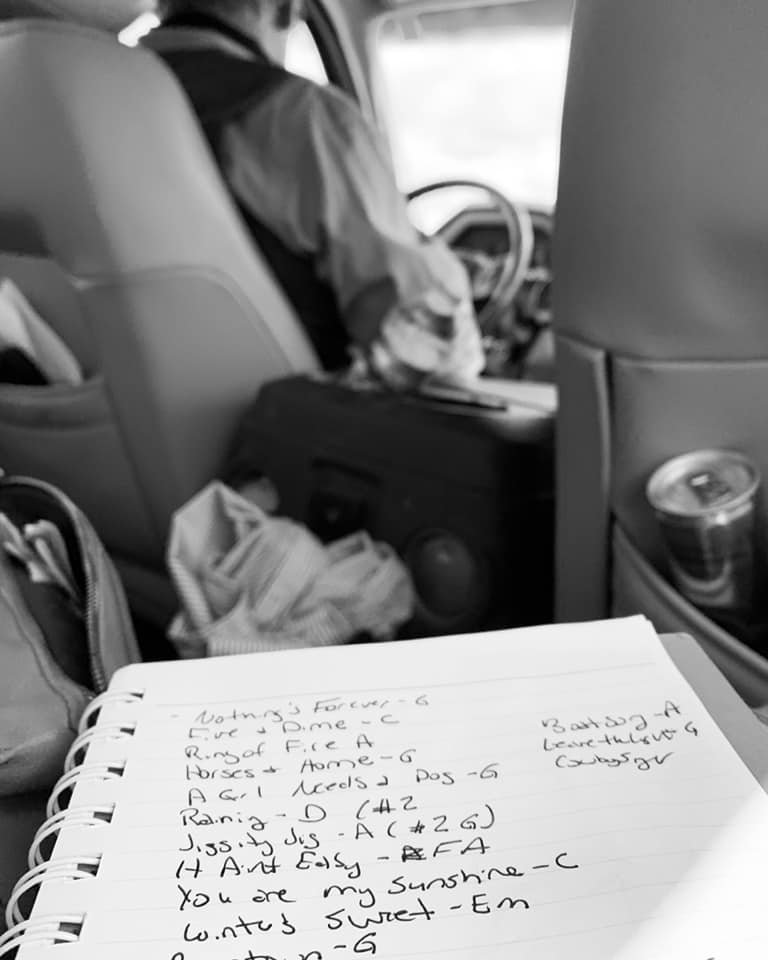 - Nothing's Forever - G
Five & Dime - C
Ring of Fire A
Horses & Home - G
A Girl Needs a Dog - G
Raining - D (#2
Jiggity Jig - A (#2 G)
It Aint Easy - FA
You are my sunshine - C
Winter's Sweet - Em
- G
- A
Leave the Light - G
Cowboy